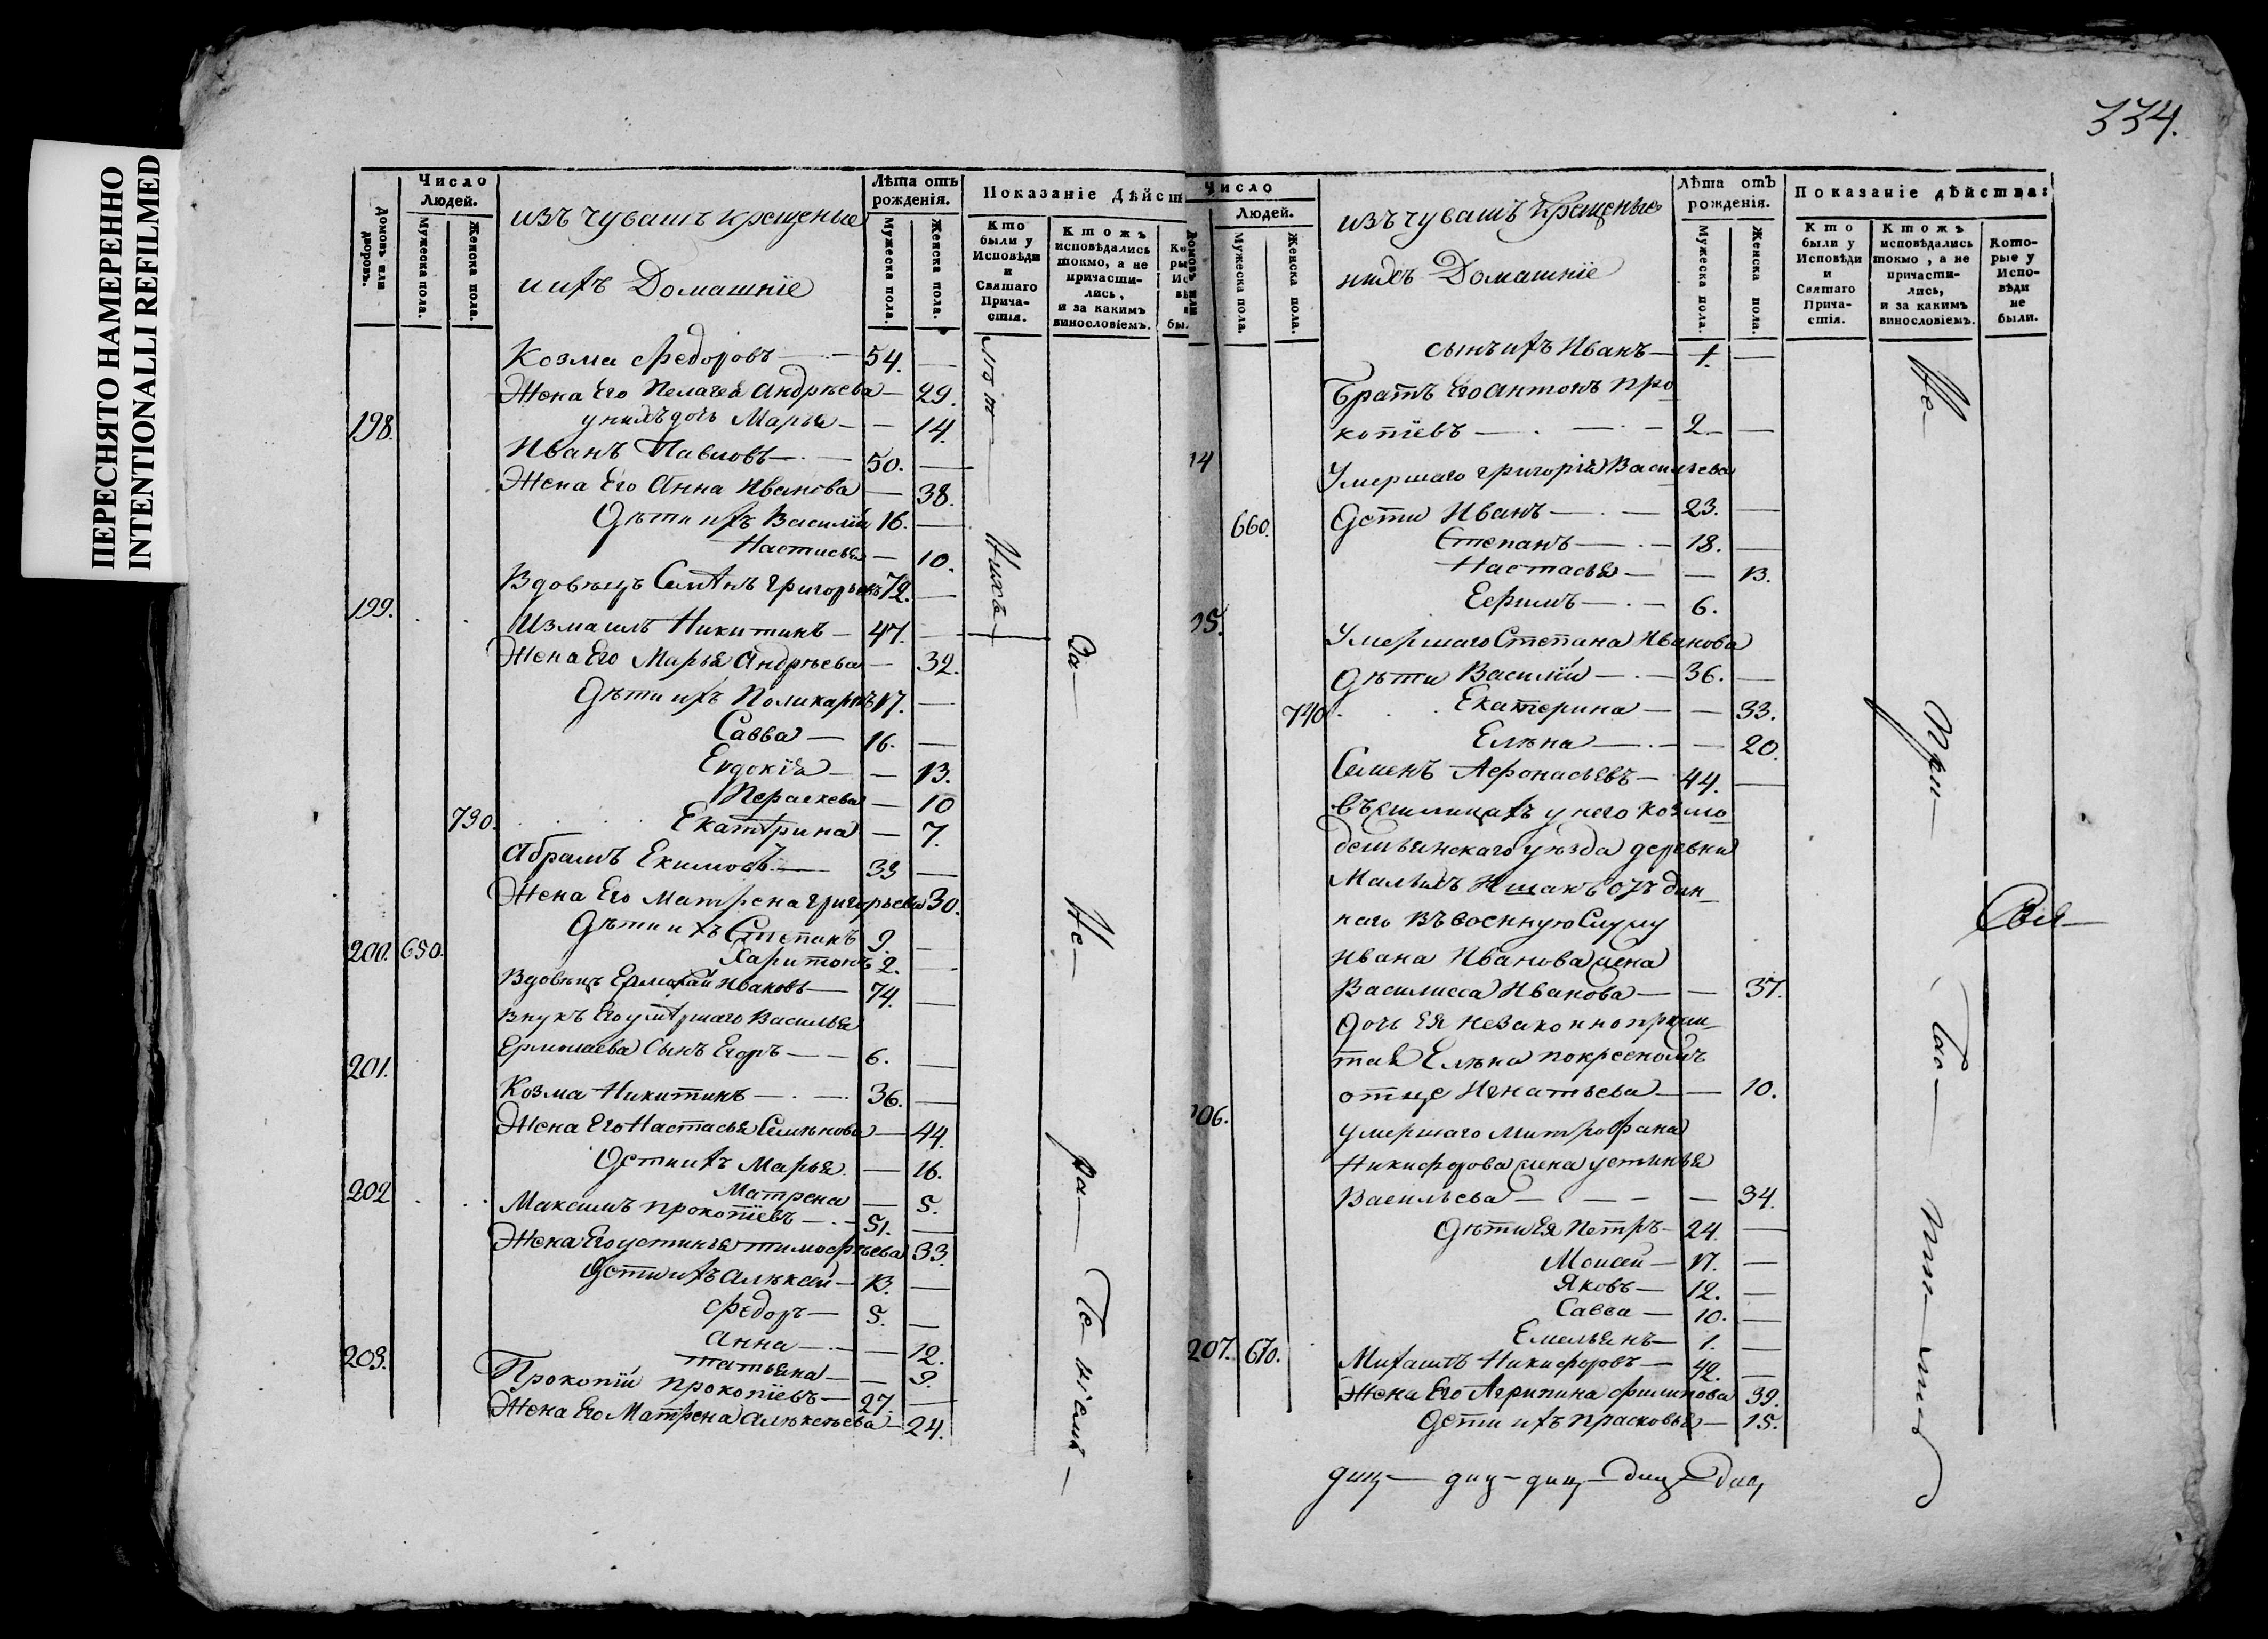 ПЕРЕСНЯТО НАМЕРЕННО
INTENTIONALLI REFILMED
334.
Домовъ или дворовъ.
Число Людей.
Мужеска пола.
Женска пола.
изъ чувашъ крещеные
и ихъ Домашніе
Лѣта отъ рожденія.
Мужеска пола.
Женска пола.
Показаніе Дѣйст
Кто были у Исповѣди и Святаго Прича-стія.
Ктожъ исповѣдались токмо, а не причасти-лись, и за какимъ винословіемъ.
Козма Федоровъ — 54. —
Жена Его Пелагея Андрѣева — 29.
198. у нихъ дочь Марья — — 14.
Иванъ Павловъ — 50. —
Жена Его Анна Иванова — 38.
Дѣти ихъ Василіи 16. —
Настасья — 10.
Вдовецъ Семенъ Григорьевъ 72. —
199. Измаилъ Никитинъ — 47. —
Жена Его Марья Андрѣева — 32.
Дѣти ихъ Поликарпъ 17. —
Савва — 16. —
Евдокія — — 13.
Параскева — 10
730. Екатерина — 7.
Абрамъ Екимовъ — 33 —
Жена Его Матрена Григорьева 30.
Дѣти ихъ Степанъ 9. —
200. 650. Харитонъ 2. —
Вдовецъ Ермолай Ивановъ — 74. —
Внукъ Его умершаго Василья
Ермолаева Сынъ Егоръ — 6. —
201.
Козма Никитинъ — 36. —
Жена Его Настасья Семенова — 44.
Дети ихъ Марья — 16.
202 Матрена — 5.
Максимъ Прокопіевъ — 51. —
Жена Его устинья тимофѣева 33.
Дети ихъ алѣксеи — 13. —
Федоръ — 5. —
Анна — — 12.
203. татьяна — — 9.
Прокопіи Прокопіевъ — 27. —
Жена Его Матрена Алѣксѣева — 24.
лѣт — Никъ
За — Не — ра — Де — ніемъ —
Число Людей.
Мужеска пола.
Женска пола.
изъ чувашъ Крещеные
и ихъ Домашніе
Лѣта отъ рожденія.
Мужеска пола.
Женска пола.
Показаніе дѣйства:
Кто были у Исповѣди и Святаго Прича-стія.
Ктожъ исповѣдались токмо, а не причасти-лись, и за какимъ винословіемъ.
Кото-рые у Испо-вѣди не были.
сынъ ихъ Иванъ — 1. —
Братъ Его Антонъ Про
копіевъ — 2 — —
14 Умершаго Григорія Васильева
660. Дети Иванъ — 23. —
Степанъ — 18. —
Настасья — — 13.
Ефимъ — 6.
05. Умершаго Степана Иванова
Дѣти Василіи — 36. —
740. Екатерина — — 33.
Елѣна — — 20.
Семенъ Афонасьевъ — 44. —
въ жилицахъ у него Козмо
демьянскаго уѣзда деревни
Малыхъ Ишакъ отъдан
наго въ военную Службу
Ивана Иванова жена
Василисса Иванова — — 37.
Дочь Ея незаконноприжи
тая Елѣна по кресномъ
отце Игнатьева — — 10.
06. умершаго Митрофана
Никифорова жена устинья
Васильева — — 34.
Дѣти Ея Петръ — 24. —
Моисеи — 17. —
Яковъ — 12. —
Савва — 10. —
Емельянъ — 1. —
207. 670. Михаилъ Никифоровъ — 42. —
Жена Его Агрипина Филипова 39.
Дети ихъ Прасковья — 15.
Не — При —